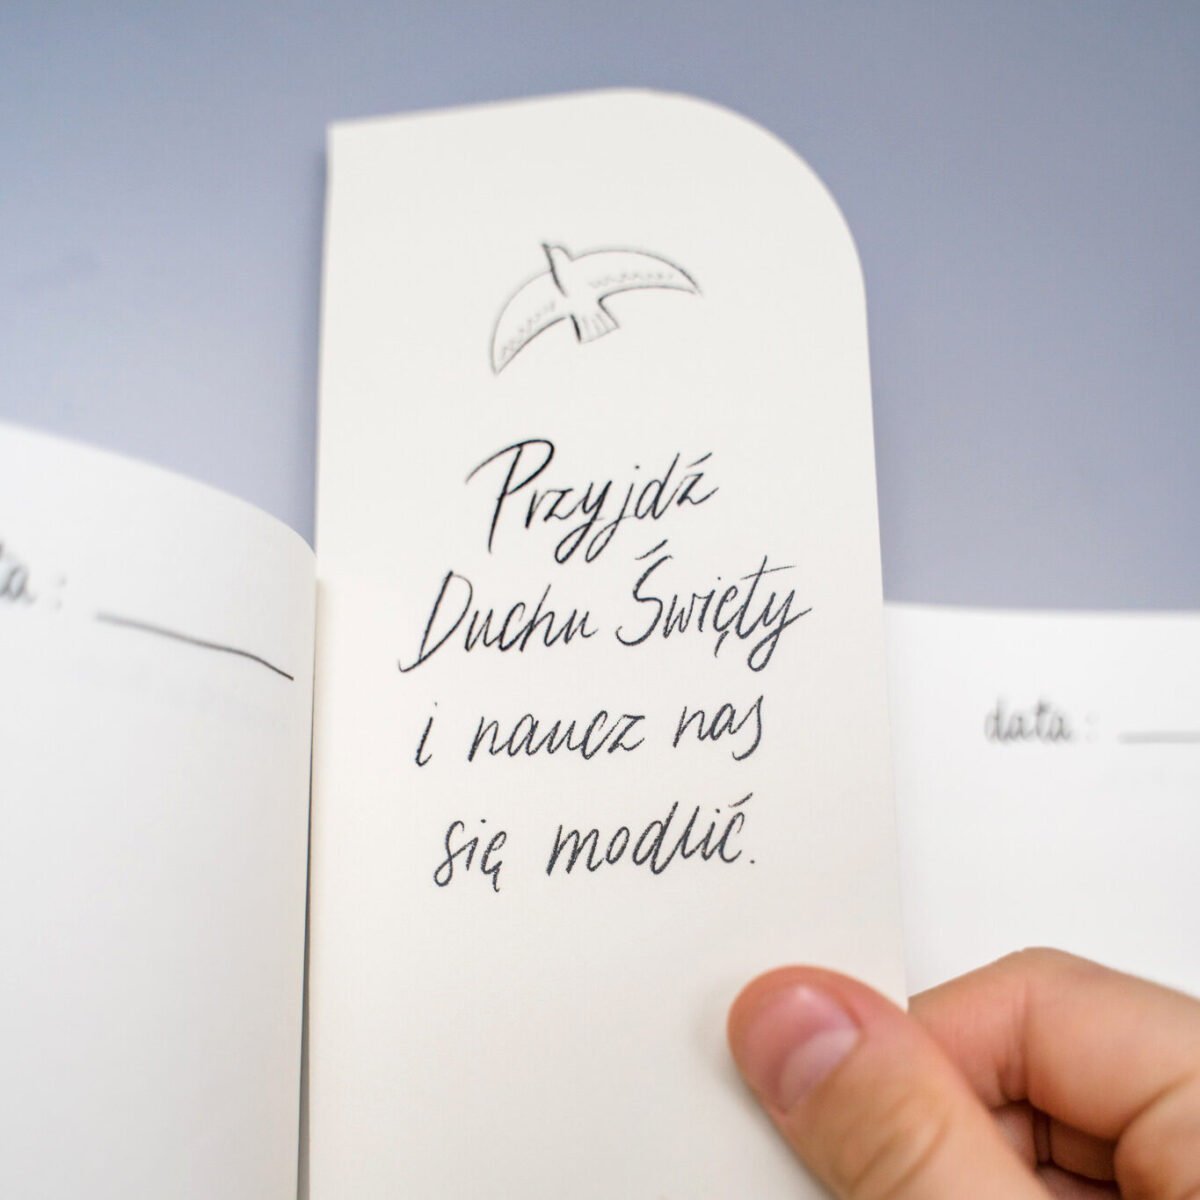 Przyjdź
Duchu Święty
i naucz nas
się modlić.
ta :
data :